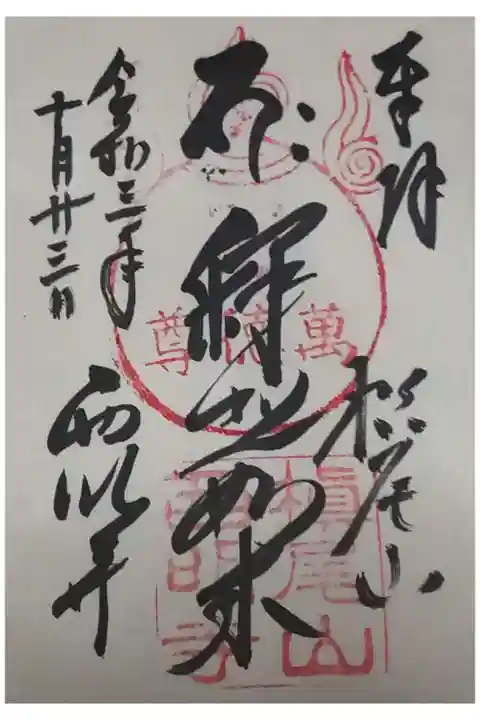 奉拝
槇尾山
釋迦如来
令和三年
十月廿三日
西明寺
萬徳尊
槇尾山
西明寺